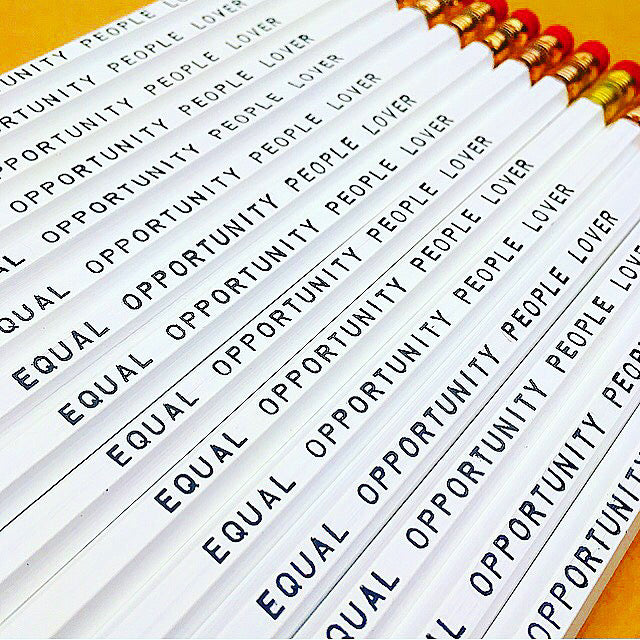 UNITY PEOPLE LO
RTUNITY PEOPLE LOVER
PPORTUNITY PEOPLE LOVER
OPPORTUNITY PEOPLE LOVER
AL OPPORTUNITY PEOPLE LOVER
QUAL OPPORTUNITY PEOPLE LOVER
EQUAL OPPORTUNITY PEOPLE LOVER
EQUAL OPPORTUNITY PEOPLE LOVER
EQUAL OPPORTUNITY PEOPLE LOVER
EQUAL OPPORTUNITY PEOPLE LOVER
EQUAL OPPORTUNITY PEOPLE LOVER
EQUAL OPPORTUNITY PEOPLE LOVER
QUAL OPPORTUNITY PEOPLE LOVE
AL OPPORTUNITY PEOP
OPPORTUNIT